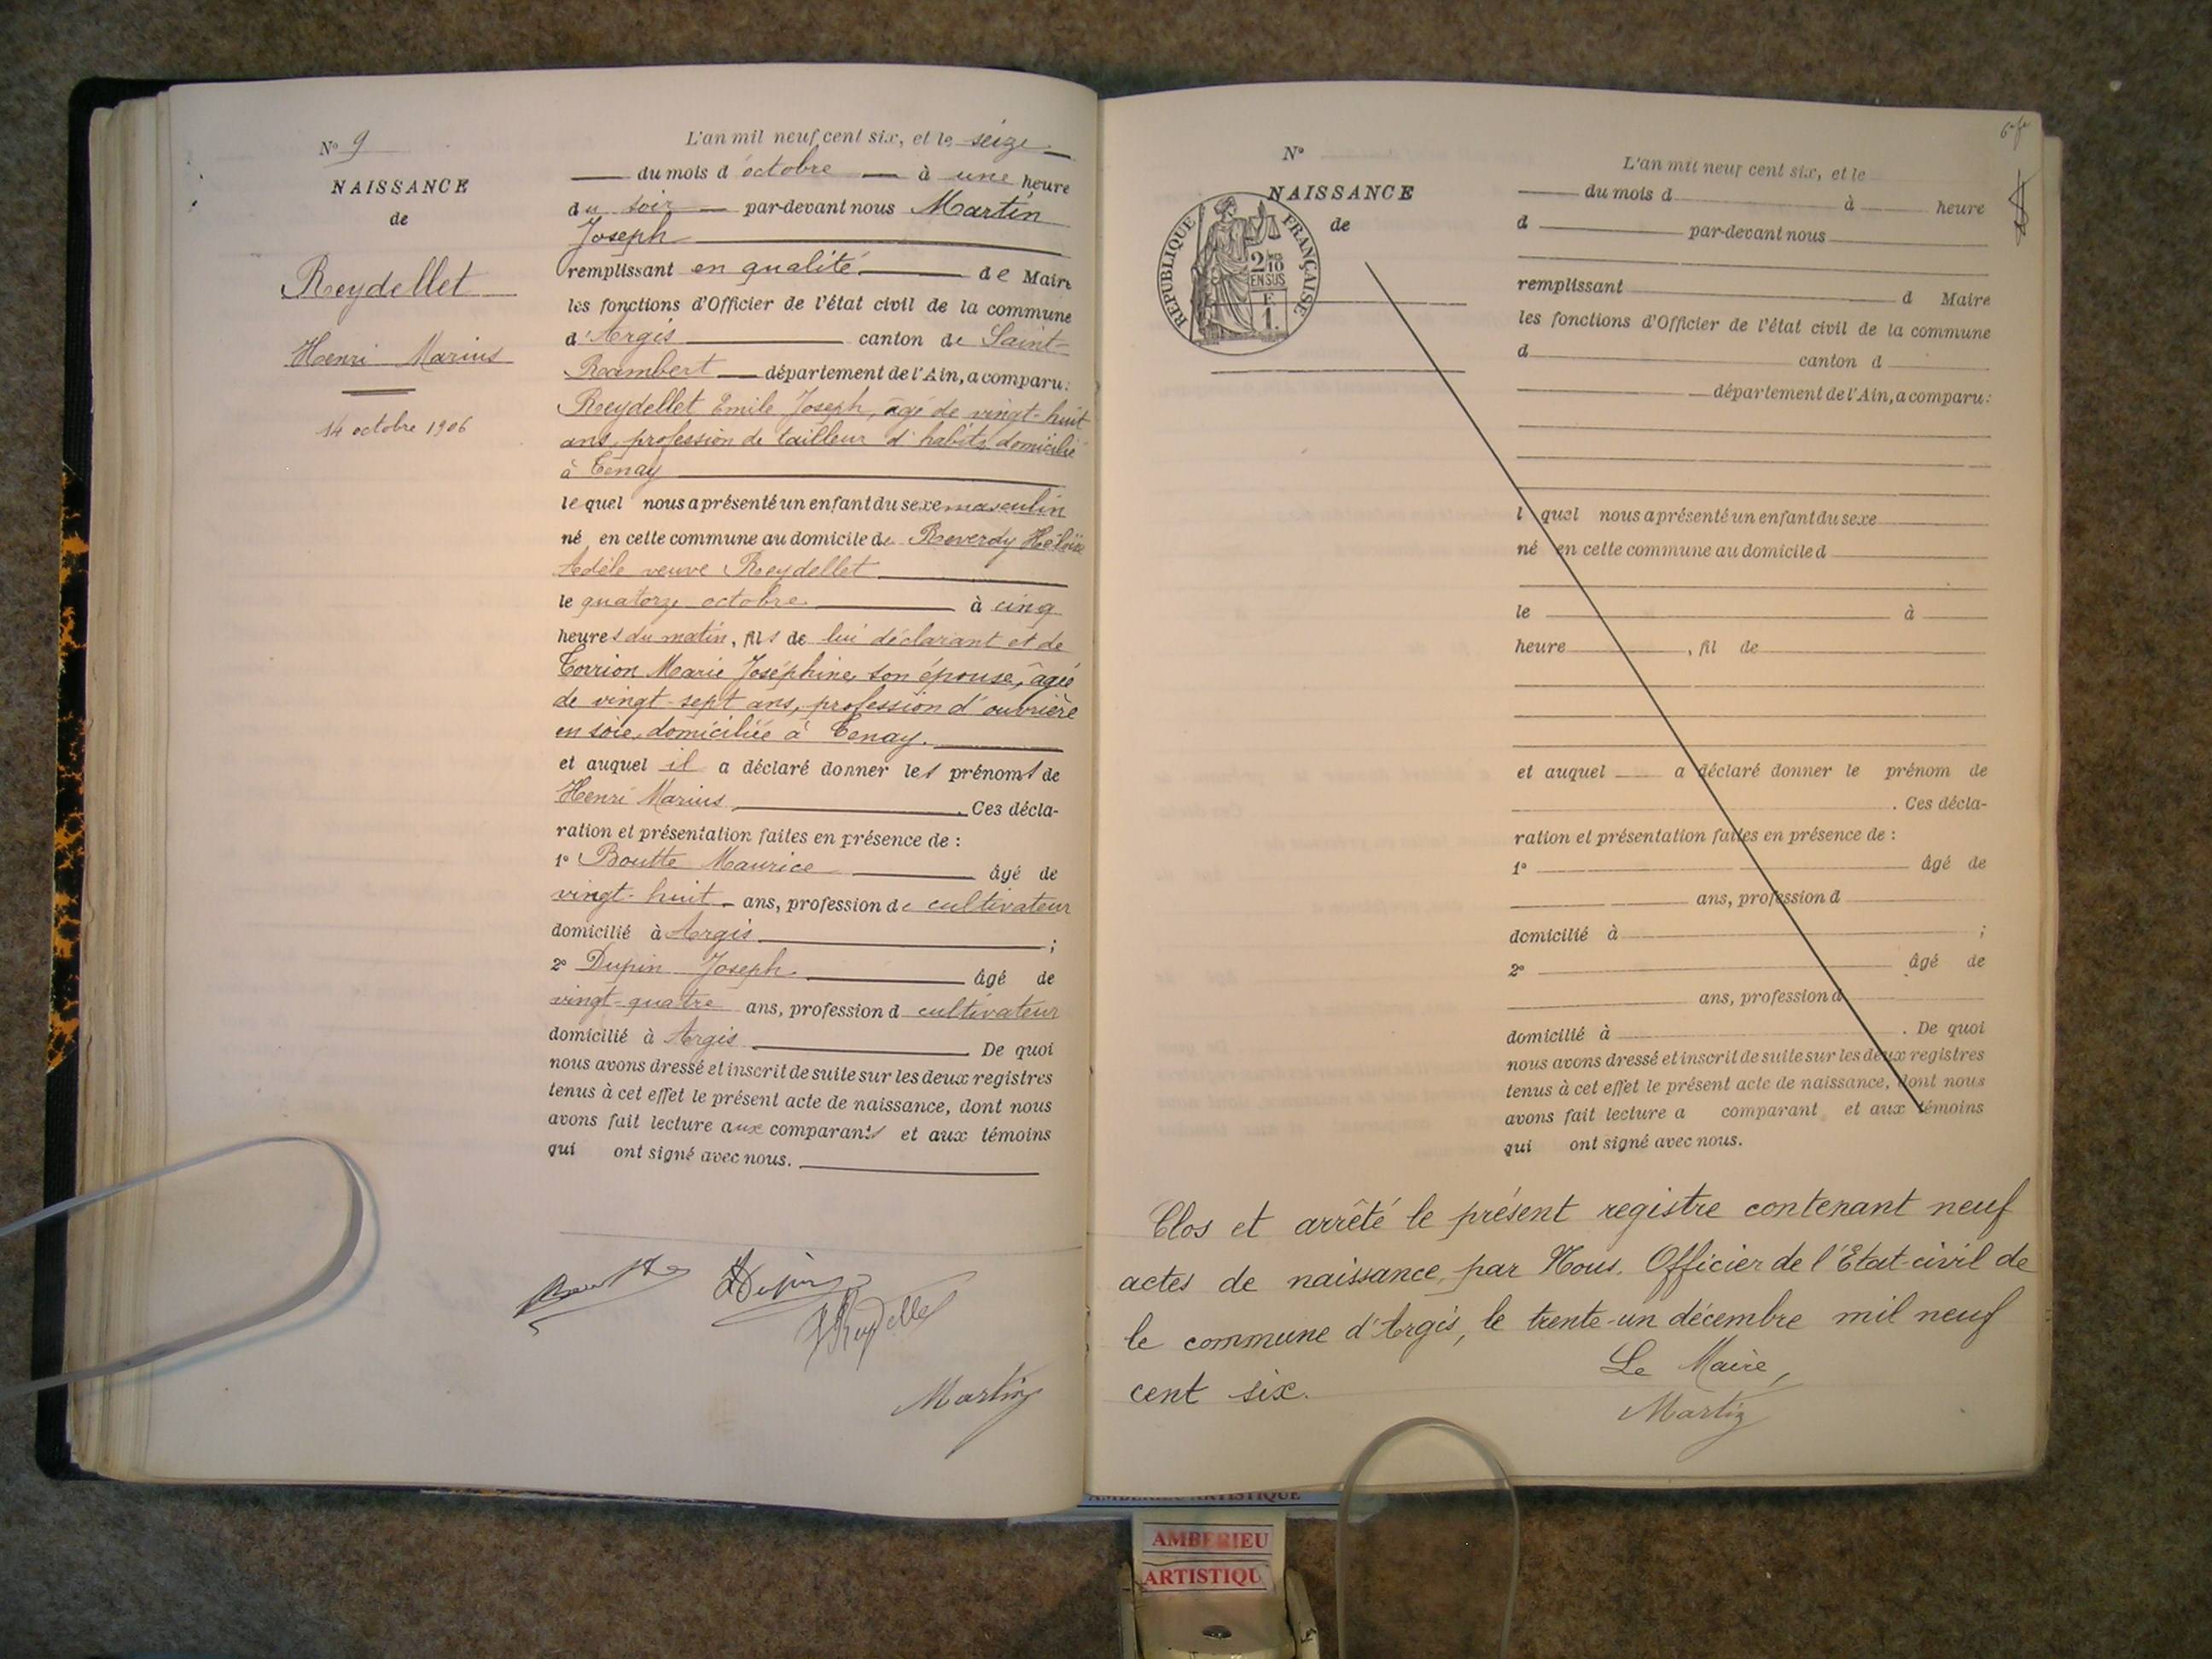 N° 9
NAISSANCE
de
Reydellet
Henri Marius
14 octobre 1906
L'an mil neuf cent six, et le seize
du mois d'octobre à une heure
du soir par-devant nous Martin
Joseph
remplissant en qualité de Maire
les fonctions d'Officier de l'état civil de la commune
d'Argis canton de Saint-
Rambert département de l'Ain, a comparu:
Reydellet Emile Joseph, âgé de vingt-huit
ans, profession de tailleur d'habits, domicilié
à Tenay
lequel nous a présenté un enfant du sexe masculin
né en cette commune au domicile de Reverdy Héloïse
Adèle veuve Reydellet
le quatorze octobre à cinq
heures du matin, fils de lui déclarant et de
Marie Joséphine son épouse, âgée
de vingt-sept ans, profession d'ouvrière
en soie, domiciliée à Tenay.
et auquel il a déclaré donner les prénoms de
Henri Marius. Ces décla-
ration et présentation faites en présence de :
1° Boutte Maurice âgé de
vingt-huit ans, profession de cultivateur
domicilié à Argis ;
2° Dupin Joseph âgé de
vingt-quatre ans, profession d cultivateur
domicilié à Argis De quoi
nous avons dressé et inscrit de suite sur les deux registres
tenus à cet effet le présent acte de naissance, dont nous
avons fait lecture aux comparants et aux témoins
qui ont signé avec nous.
Dupin
Reydellet
Martin
N°
NAISSANCE
de
RÉPUBLIQUE FRANÇAISE
2/10
EN SUS
F.
1.
L'an mil neuf cent six, et le
du mois d à heure
d par-devant nous
remplissant d Maire
les fonctions d'Officier de l'état civil de la commune
d canton d
département de l'Ain, a comparu:
l quel nous a présenté un enfant du sexe
né en cette commune au domicile d
le à
heure , fil de
et auquel a déclaré donner le prénom de
. Ces décla-
ration et présentation faites en présence de :
1° âgé de
ans, profession d
domicilié à ;
2° âgé de
ans, profession d
domicilié à . De quoi
nous avons dressé et inscrit de suite sur les deux registres
tenus à cet effet le présent acte de naissance, dont nous
avons fait lecture a comparant et aux témoins
qui ont signé avec nous.
Clos et arrêté le présent registre contenant neuf
actes de naissance, par Nous, Officier de l'Etat-civil de
le commune d'Argis, le trente-un décembre mil neuf
cent six.
Le Maire,
Martin
AMBERIEU ARTISTIQUE
AMBERIEU
ARTISTIQU